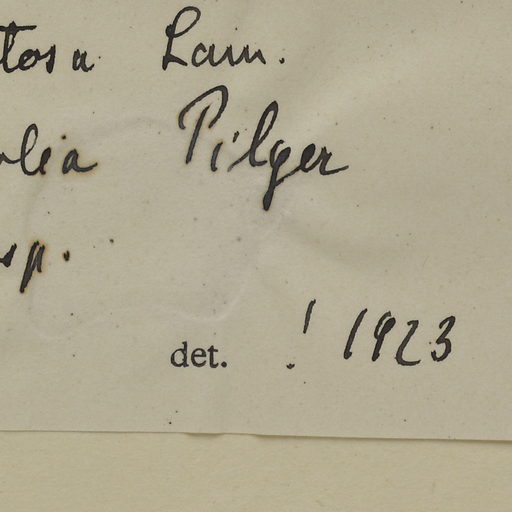 tosa Lam.
olia Pilger
sp.
det. ! 1923